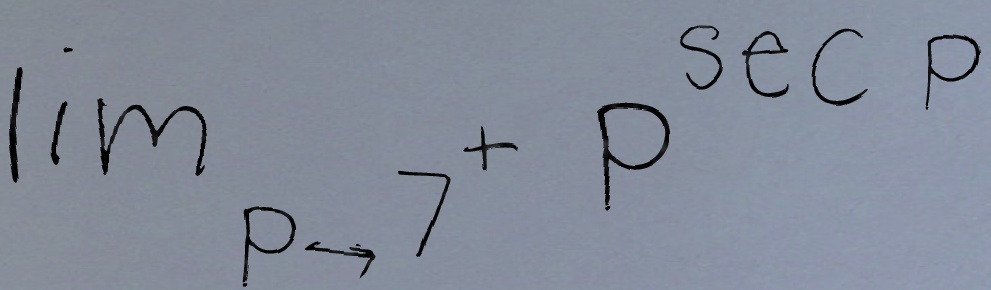 lim p→7⁺ p^{sec p}